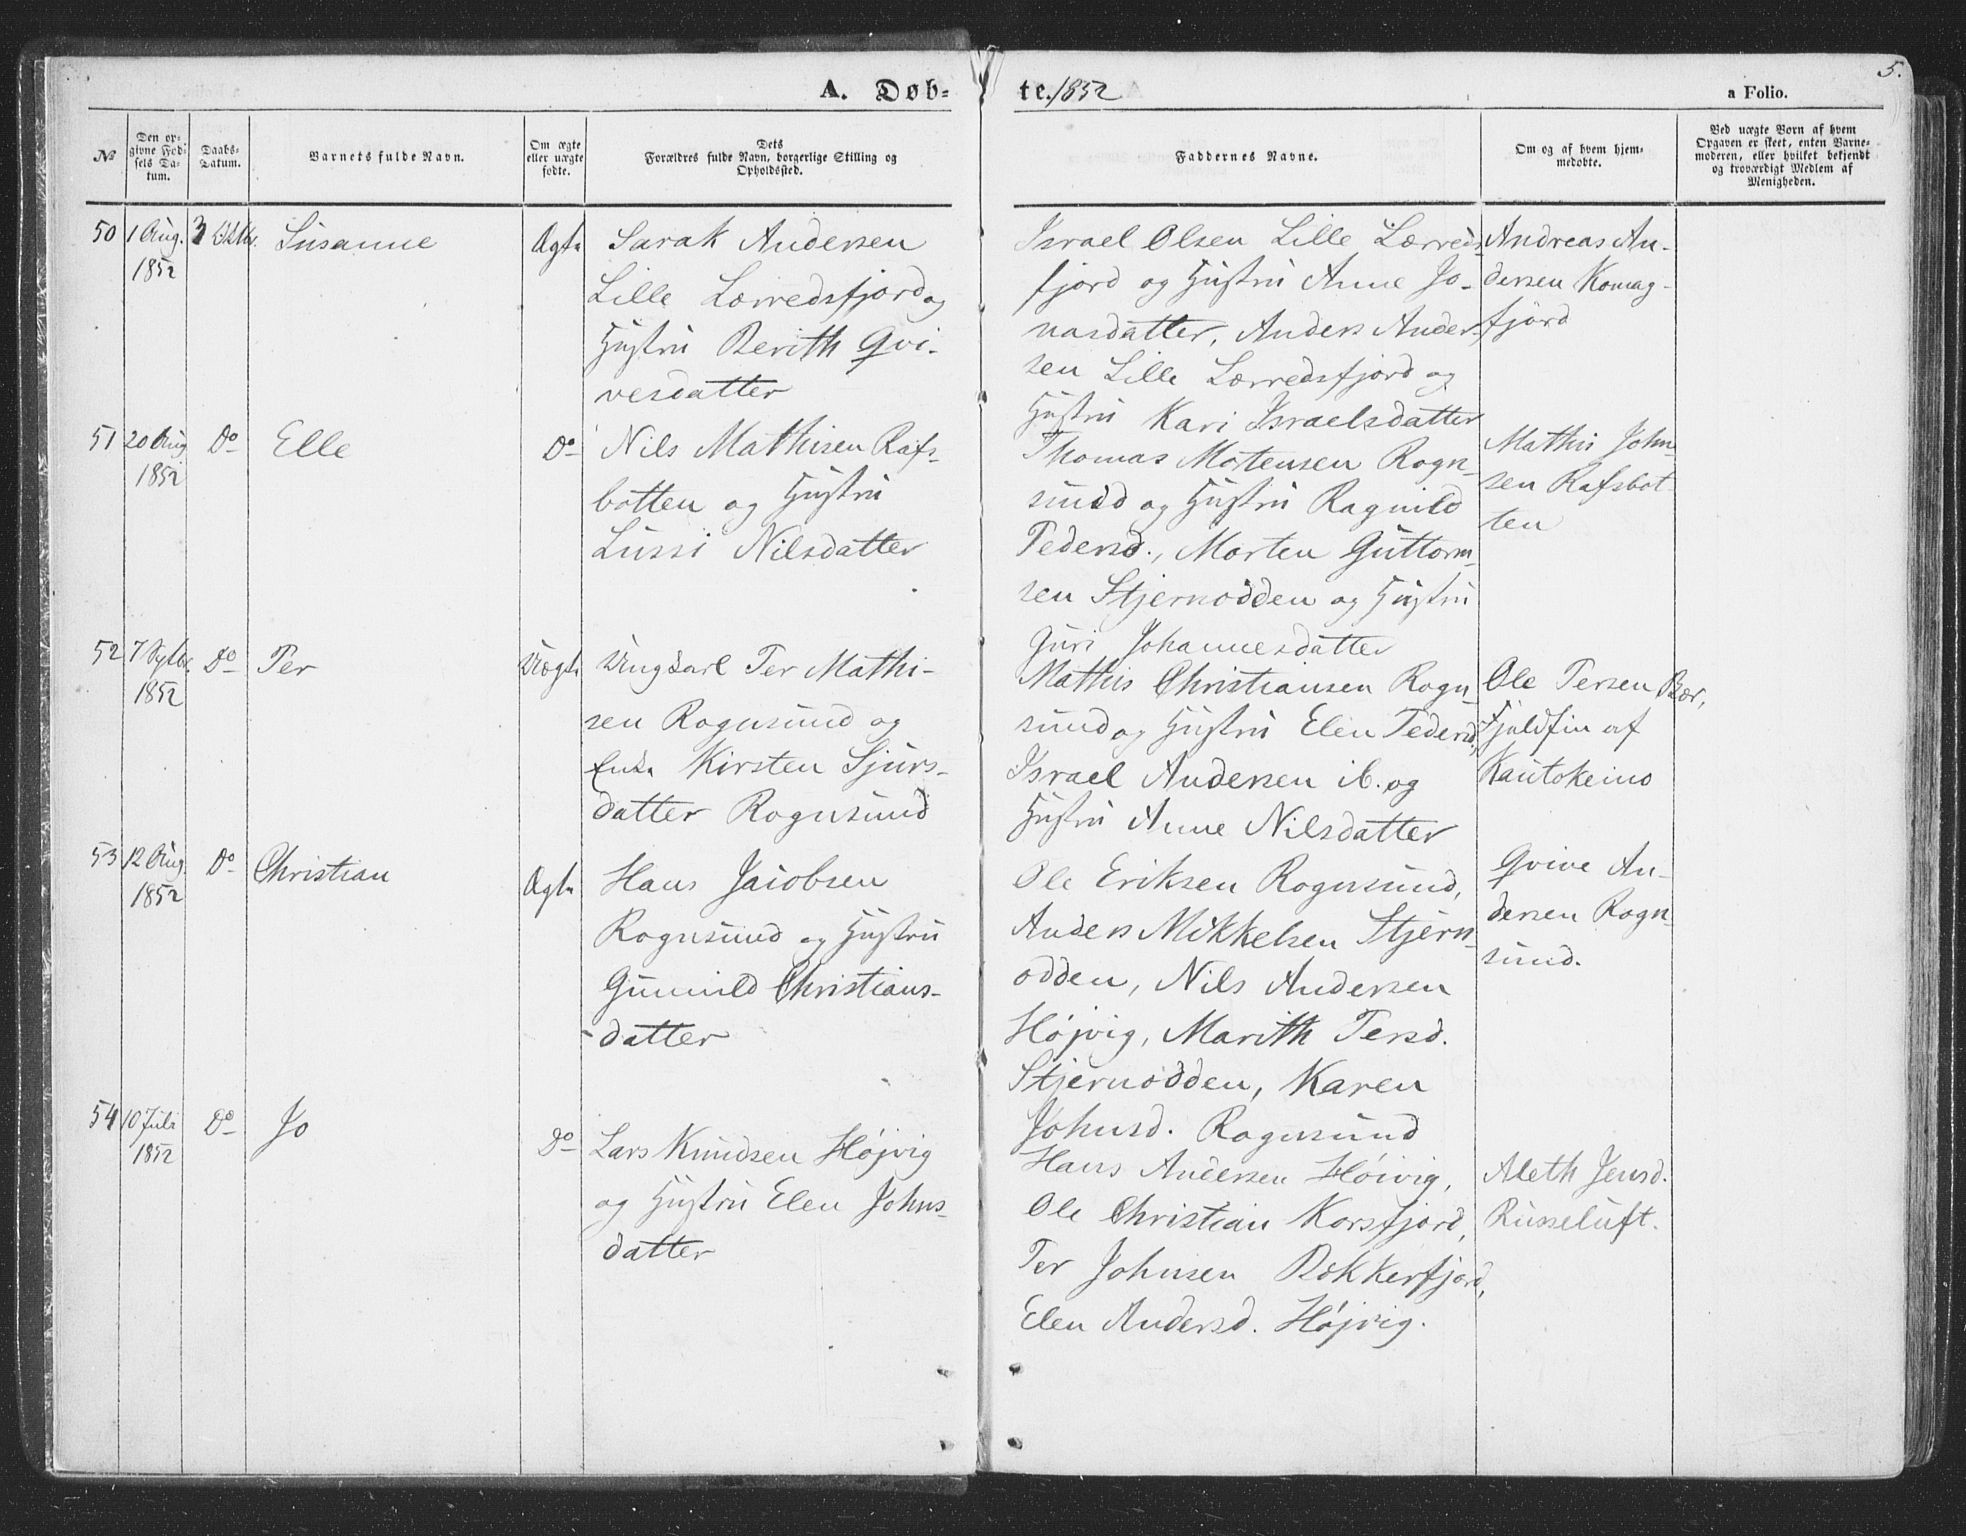 5.
A. Døb-
te. 1852
a Folio.
№
Den op-
givne Fød-
sels Da-
tum.
Daabs-
Datum.
Barnets fulde Navn.
Om ægte
eller uægte
fødte.
Dets
Forældres fulde Navn, borgerlige Stilling og
Opholdssted.
Faddernes Navne.
Om og af hvem hjem-
medøbte.
Ved uægte Børn af hvem
Opgaven er skeet, enten Barne-
moderen, eller hvilket bekjendt
og troværdigt Medlem af
Menigheden.
50
1 Aug.
1852
3 Oktbr.
Susanne
Ægte
Sarak Andersen
Lille Lerredsfjord og
Hustru Berith Qvi-
vesdatter
Israel Olsen Lille Lerreds-
fjord og Hustru Anne Jo-
nasdatter, Anders Ander-
sen Lille Lerredsfjord og
Hustru Kari Israelsdatter
Andreas An-
dersen Komag-
fjord
51
20 Aug
1852
Do
Elle
Do
Nils Mathisen Rafs-
botten og Hustru
Lussi Nilsdatter
Thomas Mortensen Rogn-
sund og Hustru Ragnild
Pedersd., Morten Guttorm-
sen Stjernodden og Hustru
Guri Johannesdatter
Mathis John-
sen Rafsbot-
ten
52
7 Septbr.
1852
Do
Per
Uægte
Ungkarl Per Mathi-
sen Rognsund og
Enke Kirsten Sjurs-
datter Rognsund
Mathis Christiansen Rogn-
sund og Hustru Elen Pedersd,
Israel Andersen ib. og
Hustru Anne Nilsdatter
Ole Persen Bær,
Fjeldfin af
Kautokeino
53
12 Aug.
1852
Do
Christian
Ægte
Hans Jacobsen
Rognsund og Hustru
Gunnild Christians-
datter
Ole Eriksen Rognsund,
Anders Mikkelsen Stjern-
odden, Nils Andersen
Højvig, Marith Persd.
Stjernodden, Karen
Johnsd. Rognsund
Qvive An-
dersen Rogn-
sund.
54
10 Juli
1852
Do
Jo
Do
Lars Knudsen Højvig
og Hustru Elen Johns-
datter
Hans Andersen Høivig,
Ole Christian Korsfjord,
Per Johnsen Rokkerfjord,
Elen Andersd. Højvig.
Aleth Jensd.
Russeluft.